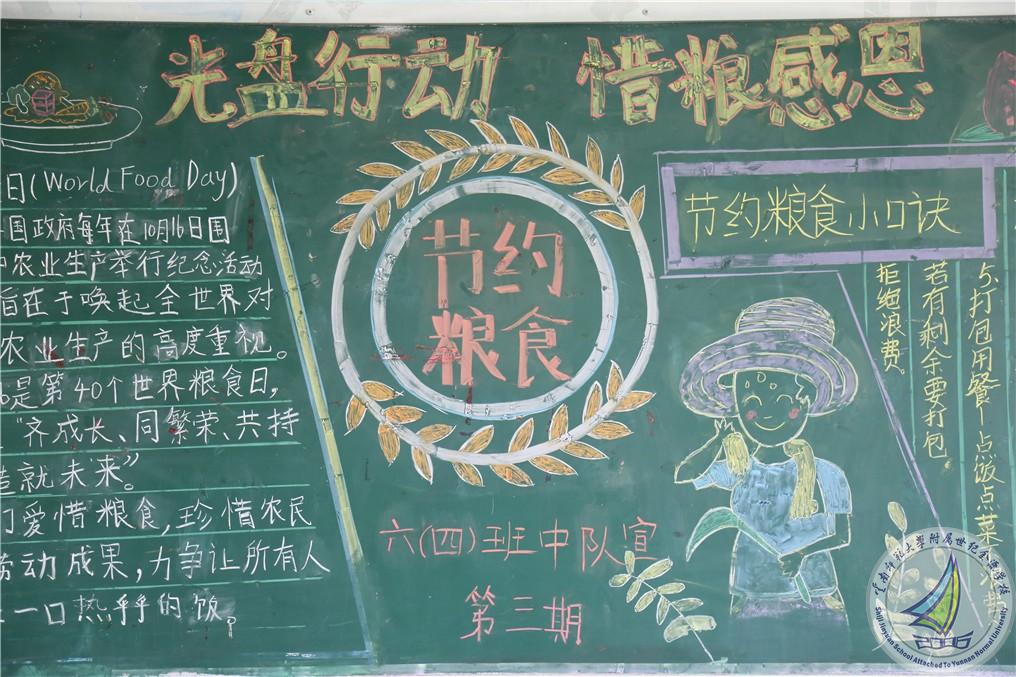 光盘行动 惜粮感恩
日(World Food Day)
国政府每年在10月16日围
农业生产举行纪念活动
旨在于唤起全世界对
农业生产的高度重视。
是第40个世界粮食日,
"齐成长、同繁荣、共持
造就未来"
们爱惜粮食,珍惜农民
劳动成果,力争让所有人
一口热乎乎的饭。
节约
粮食
六(四)班中队宣
第三期
节约粮食小口诀
5、打包用餐 点饭点菜
若有剩余要打包。
拒绝浪费。
云南师范大学附属世纪金源学校
2006
Shiji Jinyuan School Attached To Yunnan Normal University